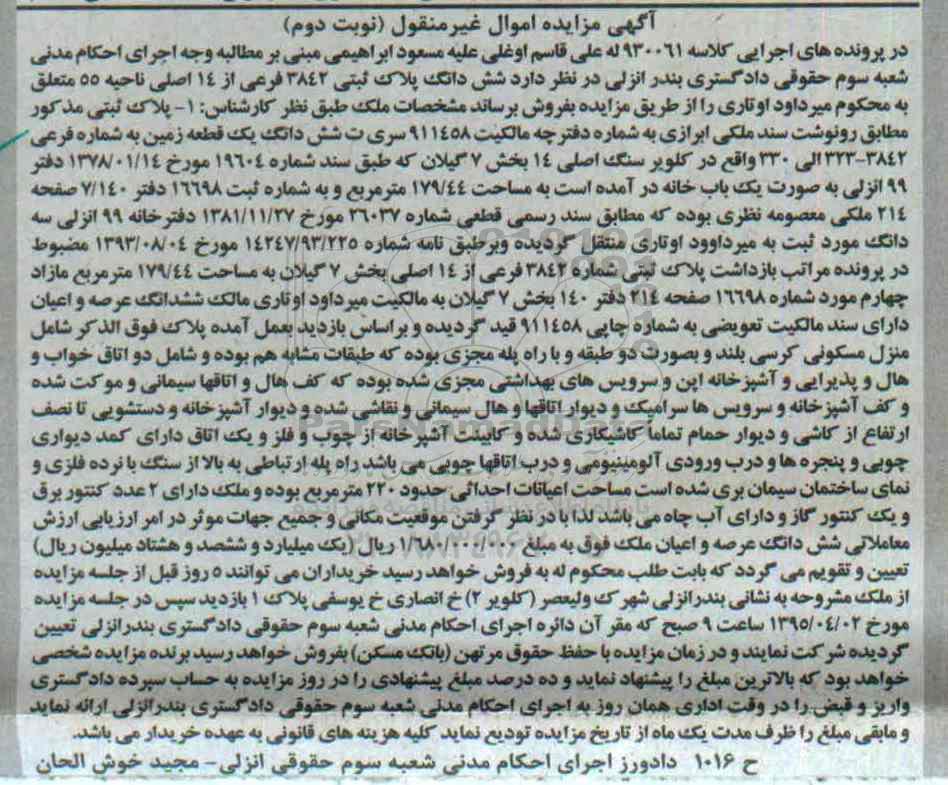 آگهی مزایده اموال غیرمنقول (نوبت دوم)
در پرونده های اجرایی کلاسه ۹۳۰۰۶۱ له علی قاسم اوغلی علیه مسعود ابراهیمی مبنی بر مطالبه وجه اجرای احکام مدنی
شعبه سوم حقوقی دادگستری بندر انزلی در نظر دارد شش دانگ پلاک ثبتی ۳۸۴۲ فرعی از ۱۴ اصلی ناحیه ۵۵ متعلق
به محکوم میرداود اوتاری را از طریق مزایده بفروش برساند مشخصات ملک طبق نظر کارشناس: ۱- پلاک ثبتی مذکور
مطابق رونوشت سند ملکی ابرازی به شماره دفترچه مالکیت ۹۱۱۴۵۸ سری ت شش دانگ یک قطعه زمین به شماره فرعی
۳۸۴۲-۳۲۳ الی ۳۳۰ واقع در کلویر سنگ اصلی ۱۴ بخش ۷ گیلان که طبق سند شماره ۱۹۶۰۴ مورخ ۱۳۷۸/۰۱/۱۴ دفتر
۹۹ انزلی به صورت یک باب خانه در آمده است به مساحت ۱۷۹/۴۴ مترمربع و به شماره ثبت ۱۶۶۹۸ دفتر ۷/۱۴۰ صفحه
۲۱۴ ملکی معصومه نظری بوده که مطابق سند رسمی قطعی شماره ۲۶۰۳۷ مورخ ۱۳۸۱/۱۱/۲۷ دفترخانه ۹۹ انزلی سه
دانگ مورد ثبت به میرداوود اوتاری منتقل گردیده وبرطبق نامه شماره ۱۴۲۴۷/۹۳/۲۲۵ مورخ ۱۳۹۳/۰۸/۰۴ مضبوط
در پرونده مراتب بازداشت پلاک ثبتی شماره ۳۸۴۲ فرعی از ۱۴ اصلی بخش ۷ گیلان به مساحت ۱۷۹/۴۴ مترمربع مازاد
چهارم مورد شماره ۱۶۶۹۸ صفحه ۲۱۴ دفتر ۱۴۰ بخش ۷ گیلان به مالکیت میرداود اوتاری مالک ششدانگ عرصه و اعیان
دارای سند مالکیت تعویضی به شماره چاپی ۹۱۱۴۵۸ قید گردیده و براساس بازدید بعمل آمده پلاک فوق الذکر شامل
منزل مسکونی کرسی بلند و بصورت دو طبقه و با راه پله مجزی بوده که طبقات مشابه هم بوده و شامل دو اتاق خواب و
هال و پذیرایی و آشپزخانه اپن و سرویس های بهداشتی مجزی شده بوده که کف هال و اتاقها سیمانی و موکت شده
و کف آشپزخانه و سرویس ها سرامیک و دیوار اتاقها و هال سیمانی و نقاشی شده و دیوار آشپزخانه و دستشویی تا نصف
ارتفاع از کاشی و دیوار حمام تماماً کاشیکاری شده و کابینت آشپزخانه از چوب و فلز و یک اتاق دارای کمد دیواری
چوبی و پنجره ها و درب ورودی آلومینیومی و درب اتاقها چوبی می باشد راه پله ارتباطی به بالا از سنگ با نرده فلزی و
نمای ساختمان سیمان بری شده است مساحت اعیانات احداثی حدود ۲۲۰ مترمربع بوده و ملک دارای ۲ عدد کنتور برق
و یک کنتور گاز و دارای آب چاه می باشد لذا با در نظر گرفتن موقعیت مکانی و جمیع جهات موثر در امر ارزیابی ارزش
معاملاتی شش دانگ عرصه و اعیان ملک فوق به مبلغ ریال (یک میلیارد و ششصد و هشتاد میلیون ریال)
تعیین و تقویم می گردد که بابت طلب محکوم له به فروش خواهد رسید خریداران می توانند ۵ روز قبل از جلسه مزایده
از ملک مشروحه به نشانی بندرانزلی شهرک ولیعصر (کلویر ۲) خ انصاری خ یوسفی پلاک ۱ بازدید سپس در جلسه مزایده
مورخ ۱۳۹۵/۰۴/۰۲ ساعت ۹ صبح که مقر آن دائره اجرای احکام مدنی شعبه سوم حقوقی دادگستری بندرانزلی تعیین
گردیده شرکت نمایند و در زمان مزایده با حفظ حقوق مرتهن (بانک مسکن) بفروش خواهد رسید برنده مزایده شخصی
خواهد بود که بالاترین مبلغ را پیشنهاد نماید و ده درصد مبلغ پیشنهادی را در روز مزایده به حساب سپرده دادگستری
واریز و قبض را در وقت اداری همان روز به اجرای احکام مدنی شعبه سوم حقوقی دادگستری بندرانزلی ارائه نماید
و مابقی مبلغ را ظرف مدت یک ماه از تاریخ مزایده تودیع نماید کلیه هزینه های قانونی به عهده خریدار می باشد.
ح ۱۰۱۶ دادورز اجرای احکام مدنی شعبه سوم حقوقی انزلی- مجید خوش الحان
ParsNamadData